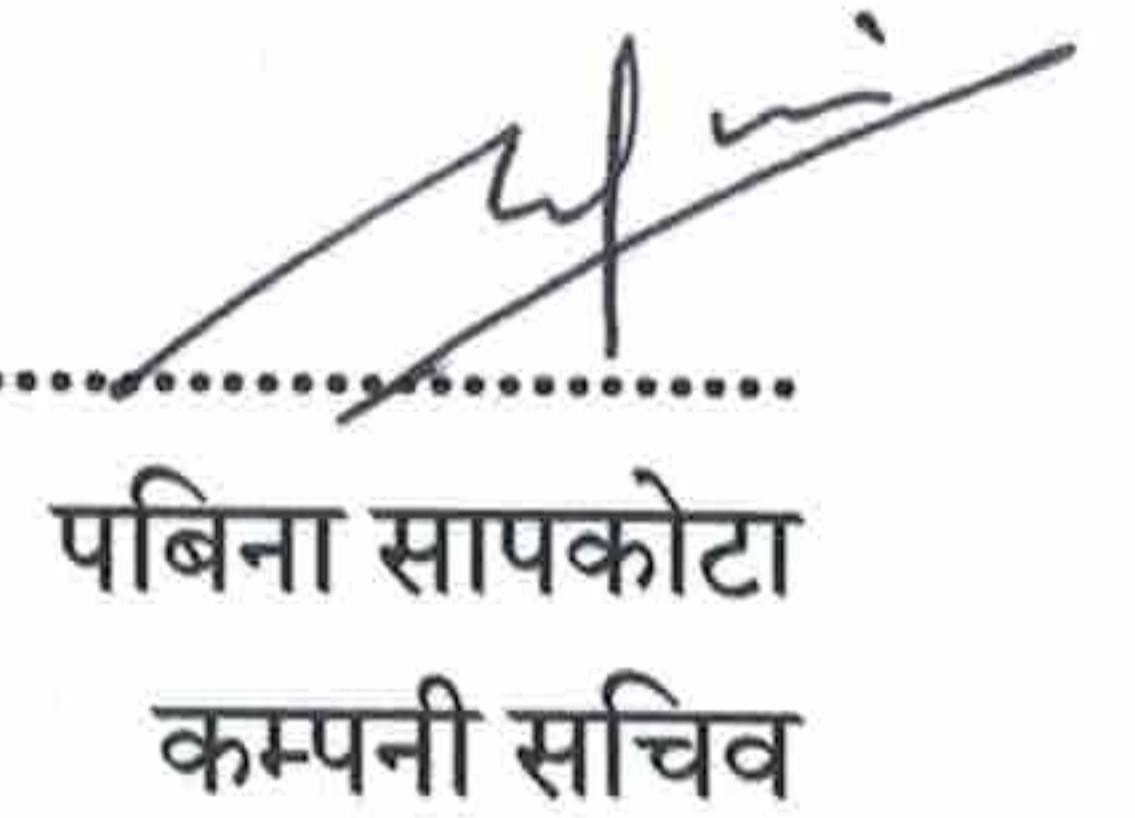 पबिना सापकोटा
कम्पनी सचिव